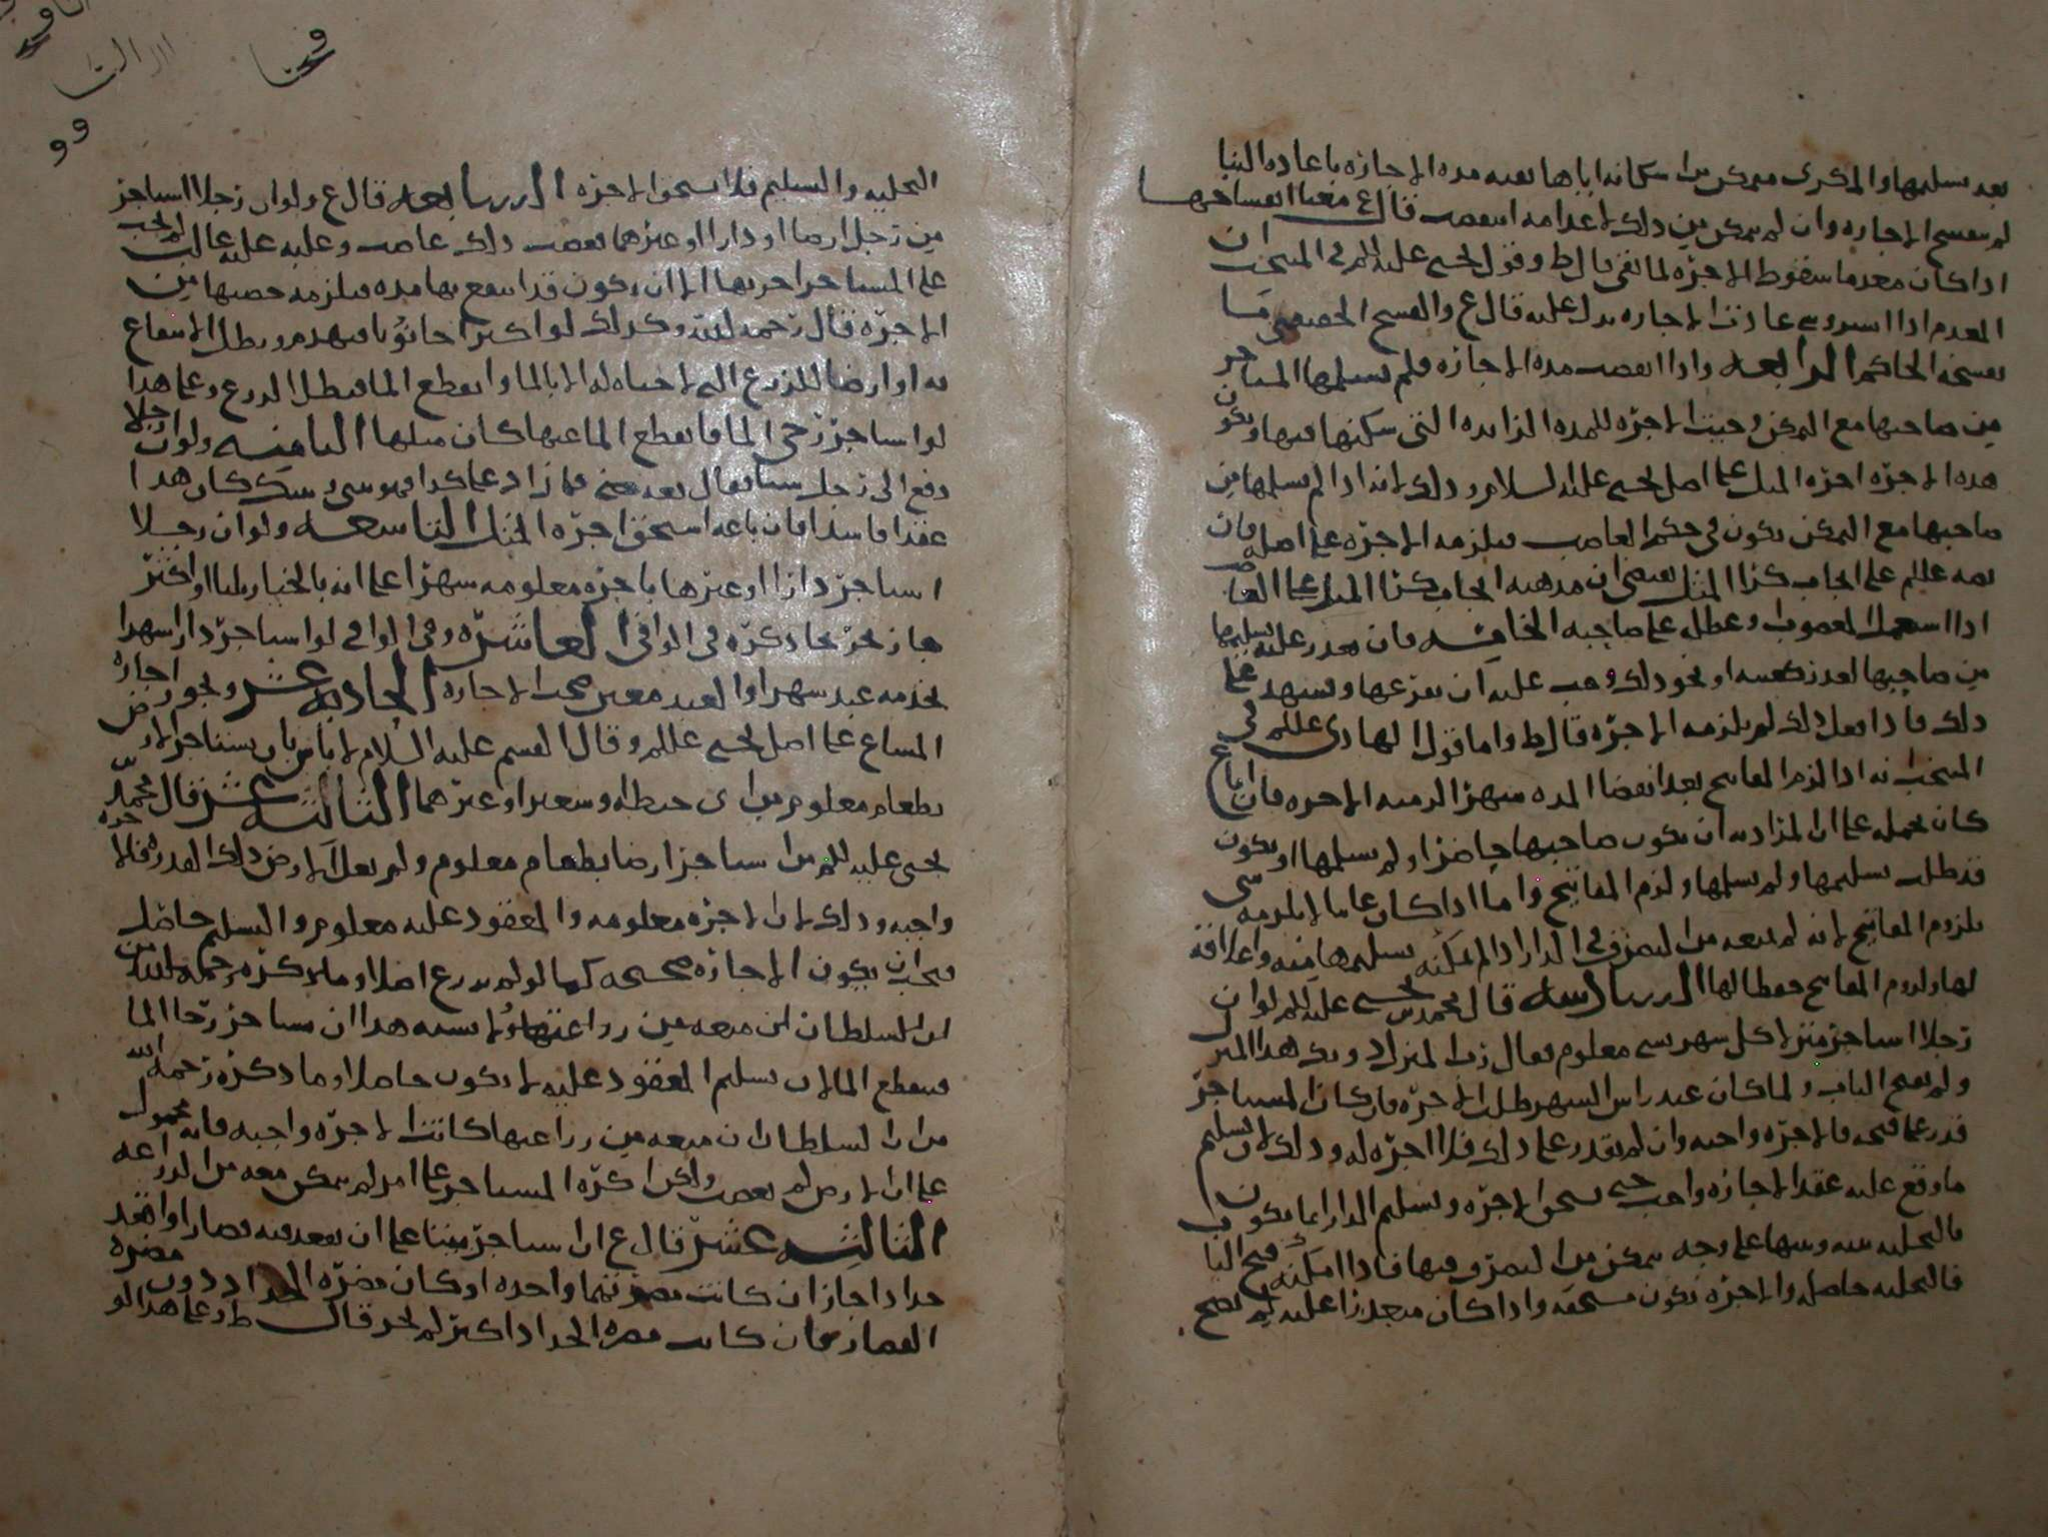 بعد تسليمها والمكري متمكن من اسكانه اياها بقيه مده الاجازه باعاده البنا
لم تنفسخ الاجاره وان لم يتمكن من ذلك لاعدامه انفصت قال ع معنا انفساخها
اذا كان معدما سقوط الاجره لما بقى قال ط وقول يحيى عليه السلم في المنتخب ان
المعدم اذا ايسر وبنى عادت الاجاره يدل عليه قال ع والفسخ الحقيقي ما
يفسخه الحاكم الرابعه واذا انقضت مده الاجازه فلم يتسلمها المستاجر
من صاحبها مع التمكن وجبت الاجره للمده الزايده التي سكنها فيها وتكون
هذه الاجره اجره المثل على اصل يحيى عليه السلام وذلك لانه اذا لم يسلمها من
صاحبها مع التمكن يكون في حكم الغاصب فيلزمه الاجره على اصله فان
نصه عليلم على ايجاب كرا المثل يقتضي ان مذهبه ايجاب كرا المثل على الغاصب
اذا استعمل المغصوب وعطله على صاحبه الخامسه فان تعذر عليه تسليمها
من صاحبها لعذر كغيبته او نحو ذلك وجب عليه ان يفرغها ويشهد على
ذلك فاذا فعل ذلك لم يلزمه الاجره قال ط واما قول الهادي عليلم في
المنتخب انه اذا لزم المفاتيح بعد انقضا المده شهرا لزمته الاجره فان اباع
كان يحمله على ان المراد به ان يكون صاحبها حاضرا ولم يسلمها او يكون
قد طلب تسليمها ولم يسلمها ولزم المفاتيح واما اذا كان غايبا لا يلزمه شي
بلزوم المفاتيح لانه لم يمنعه من التصرف في الدار اذا لم يمكنه تسليمها منه واغلاقه
لها ولزوم المفاتيح حفظا لها السادسه قال محمد بن يحيى عليه السلم لو ان
رجلا استاجر منزلا كل شهر بشي معلوم فقال رب المنزل دونك هذا المنزل
ولم يفتح الباب ولما كان عند راس الشهر طلب الاجره فان كان المستاجر
قدر على فتحه فالاجره واجبه وان لم يقدر على ذلك فلا اجره له وذلك لان تسليم
ما وقع عليه عقد الاجازه واجب حتى يستحق الاجره وتسليم الدار انما يكون
بالتخليه بينه وبينها على وجه يتمكن من التصرف فيها فاذا امكنه فتح الباب
فالتخليه حاصله والاجره تكون مستحقه واذا كان متعذرا عليه لم تصح
التخليه والتسليم فلا يستحق الاجره السابعه قال ع ولو ان رجلا استاجر
من رجل ارضا او دارا او غيرهما فغصب ذلك غاصب وغلبه عليه غالب لم يجب
على المستاجر اجرتها الا ان يكون قد انتفع بها مده فيلزمه حصتها من
الاجره قال رحمه الله وكذلك لو اكترا حانوتا فتهدم وبطل الانتفاع
به او ارضا للزرع التي لا حياه له الا بالما وانقطع الما فبطل الزرع وعلى هذا
لو استاجر رحى الما فانقطع الما عنها كان مثلها الثامنه ولو ان رجلا
دفع الى رجل شيا فقال بعه فما زاد على كذا فهو بيني وبينك كان هذا
عقدا فاسدا فان باعه استحق اجره المثل التاسعه ولو ان رجلا
استاجر دارا او غيرها باجره معلومه شهرا على انه بالخيار ثلثا او اكثر
جاز نحو ما ذكره في الوافي العاشره وفي الوافي لو استاجر دارا شهرا
بخدمه عبد شهرا والعبد معين صحت الاجاره الحاديه عشر ويجوز اجازه
المشاع على اصل يحيى عليلم وقال القسم عليه السلام لا باس بان يستاجر الارض
بطعام معلوم من اي حنطه او شعير او غيرهما الثالثه عشر قال محمد بن
يحيى عليه السلم من استاجر ارضا بطعام معلوم ولم يعل الارض ذلك القدر فالاجره
واجبه وذلك لان الاجره معلومه والمعقود عليه معلوم والتسليم حاصل
فيجب ان يكون الاجازه صحيحه كما لو لم يزرع اصلا وما ذكره رحمه الله من
ان السلطان لو منعه من زراعتها ولا يشبه هذا ان يستاجر رحا الما
فينقطع الما لان تسليم المعقود عليه لا يكون حاصلا وما ذكره رحمه الله
من ان السلطان ان منعه من زراعتها كانت الاجره واجبه فانه محمول
على ان الارض لم تغصب ولكن اكره المستاجر على امر لم يتمكن معه من الزراعه
الثالثه عشر قال ع ان استاجر بيتا على ان يقعد فيه قصارا واقعد
حدادا جاز ان كانت مضرتهما واحده او كان مضره الحداد دون مضره
القصار وان كانت مضره الحداد اكثر لم يجز قال ط وعلى هذا لو